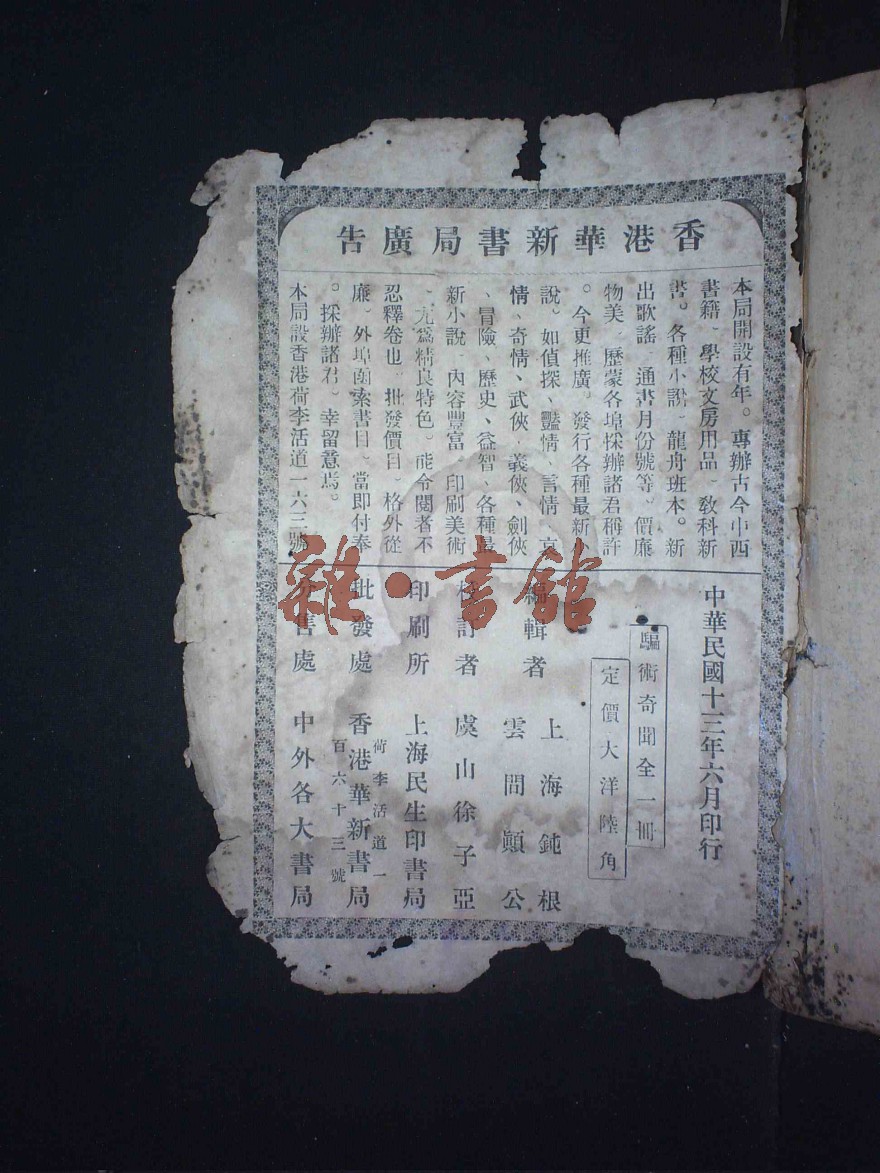 香港華新書局廣告
本局開設有年。專辦古今中西
書籍、學校文房用品、敎科新
書。各種小說、龍舟班本。新
出歌謠、通書月份號等、價廉
物美、歷蒙各埠採辦諸君稱許
。今更推廣。發行各種最新小
說。如偵探、豔情、言情、哀
情、奇情、武俠、義俠、劍俠
、冒險、歷史、益智、各種最
新小說、內容豐富、印刷美術
、尤爲精良特色。能令閱者不
忍釋卷也、批發價目、格外從
廉、外埠函索書目、當即付奉
。採辦諸君、幸留意焉。
本局設香港荷李活道一六三號
中華民國十三年六月印行
騙術奇聞全一冊
定價大洋陸角
編輯者 上海鈍根
雲間顚公
校訂者 虞山徐子亞
印刷所 上海民生印書局
批發處 香港華新書局
荷李活道一
百六十三號
分售處 中外各大書局
雜·書館